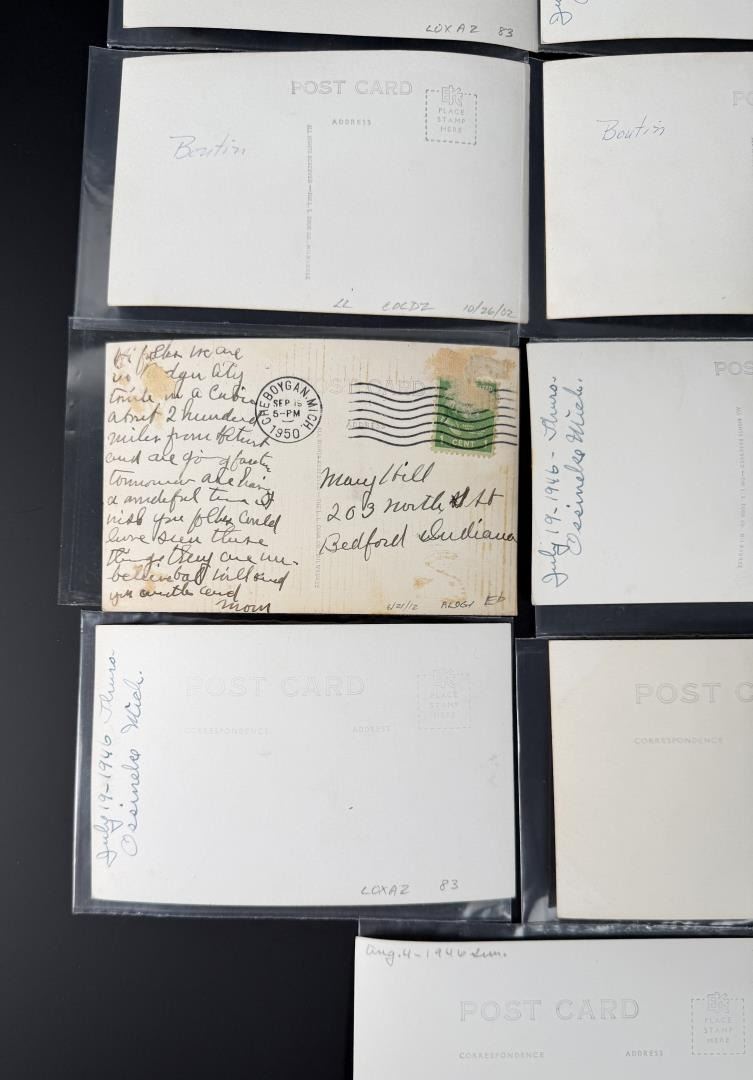 LOXAZ 83
July
POST CARD
EKC
PLACE
STAMP
HERE
ADDRESS
Boutin
LL COLDZ 10/26/02
PO
Boutin
Hi folks we are
in
tonite in a Cabin
about 2 hundred
miles from
and are going farther
tomorrow are having
a time
wish you folks could
have seen these
things they are un-
will send
you and
Mom
CHEBOYGAN, MICH.
SEP 15
5-PM
1950
CARD
ADDRESS
1 CENT 1
Mary Hill
203 North St
Bedford Indiana
6/21/12 ALOGY EP
POS
July 19-1946-Thurs.
Ossineke Mich.
July 19-1946 Thurs.
Ossineke Mich.
POST CARD
CORRESPONDENCE ADDRESS
PLACE
STAMP
HERE
LOXAZ 83
POST C
CORRESPONDENCE
Aug. 4-1946 Sun.
POST CARD
EKC
PLACE
STAMP
HERE
CORRESPONDENCE ADDRESS